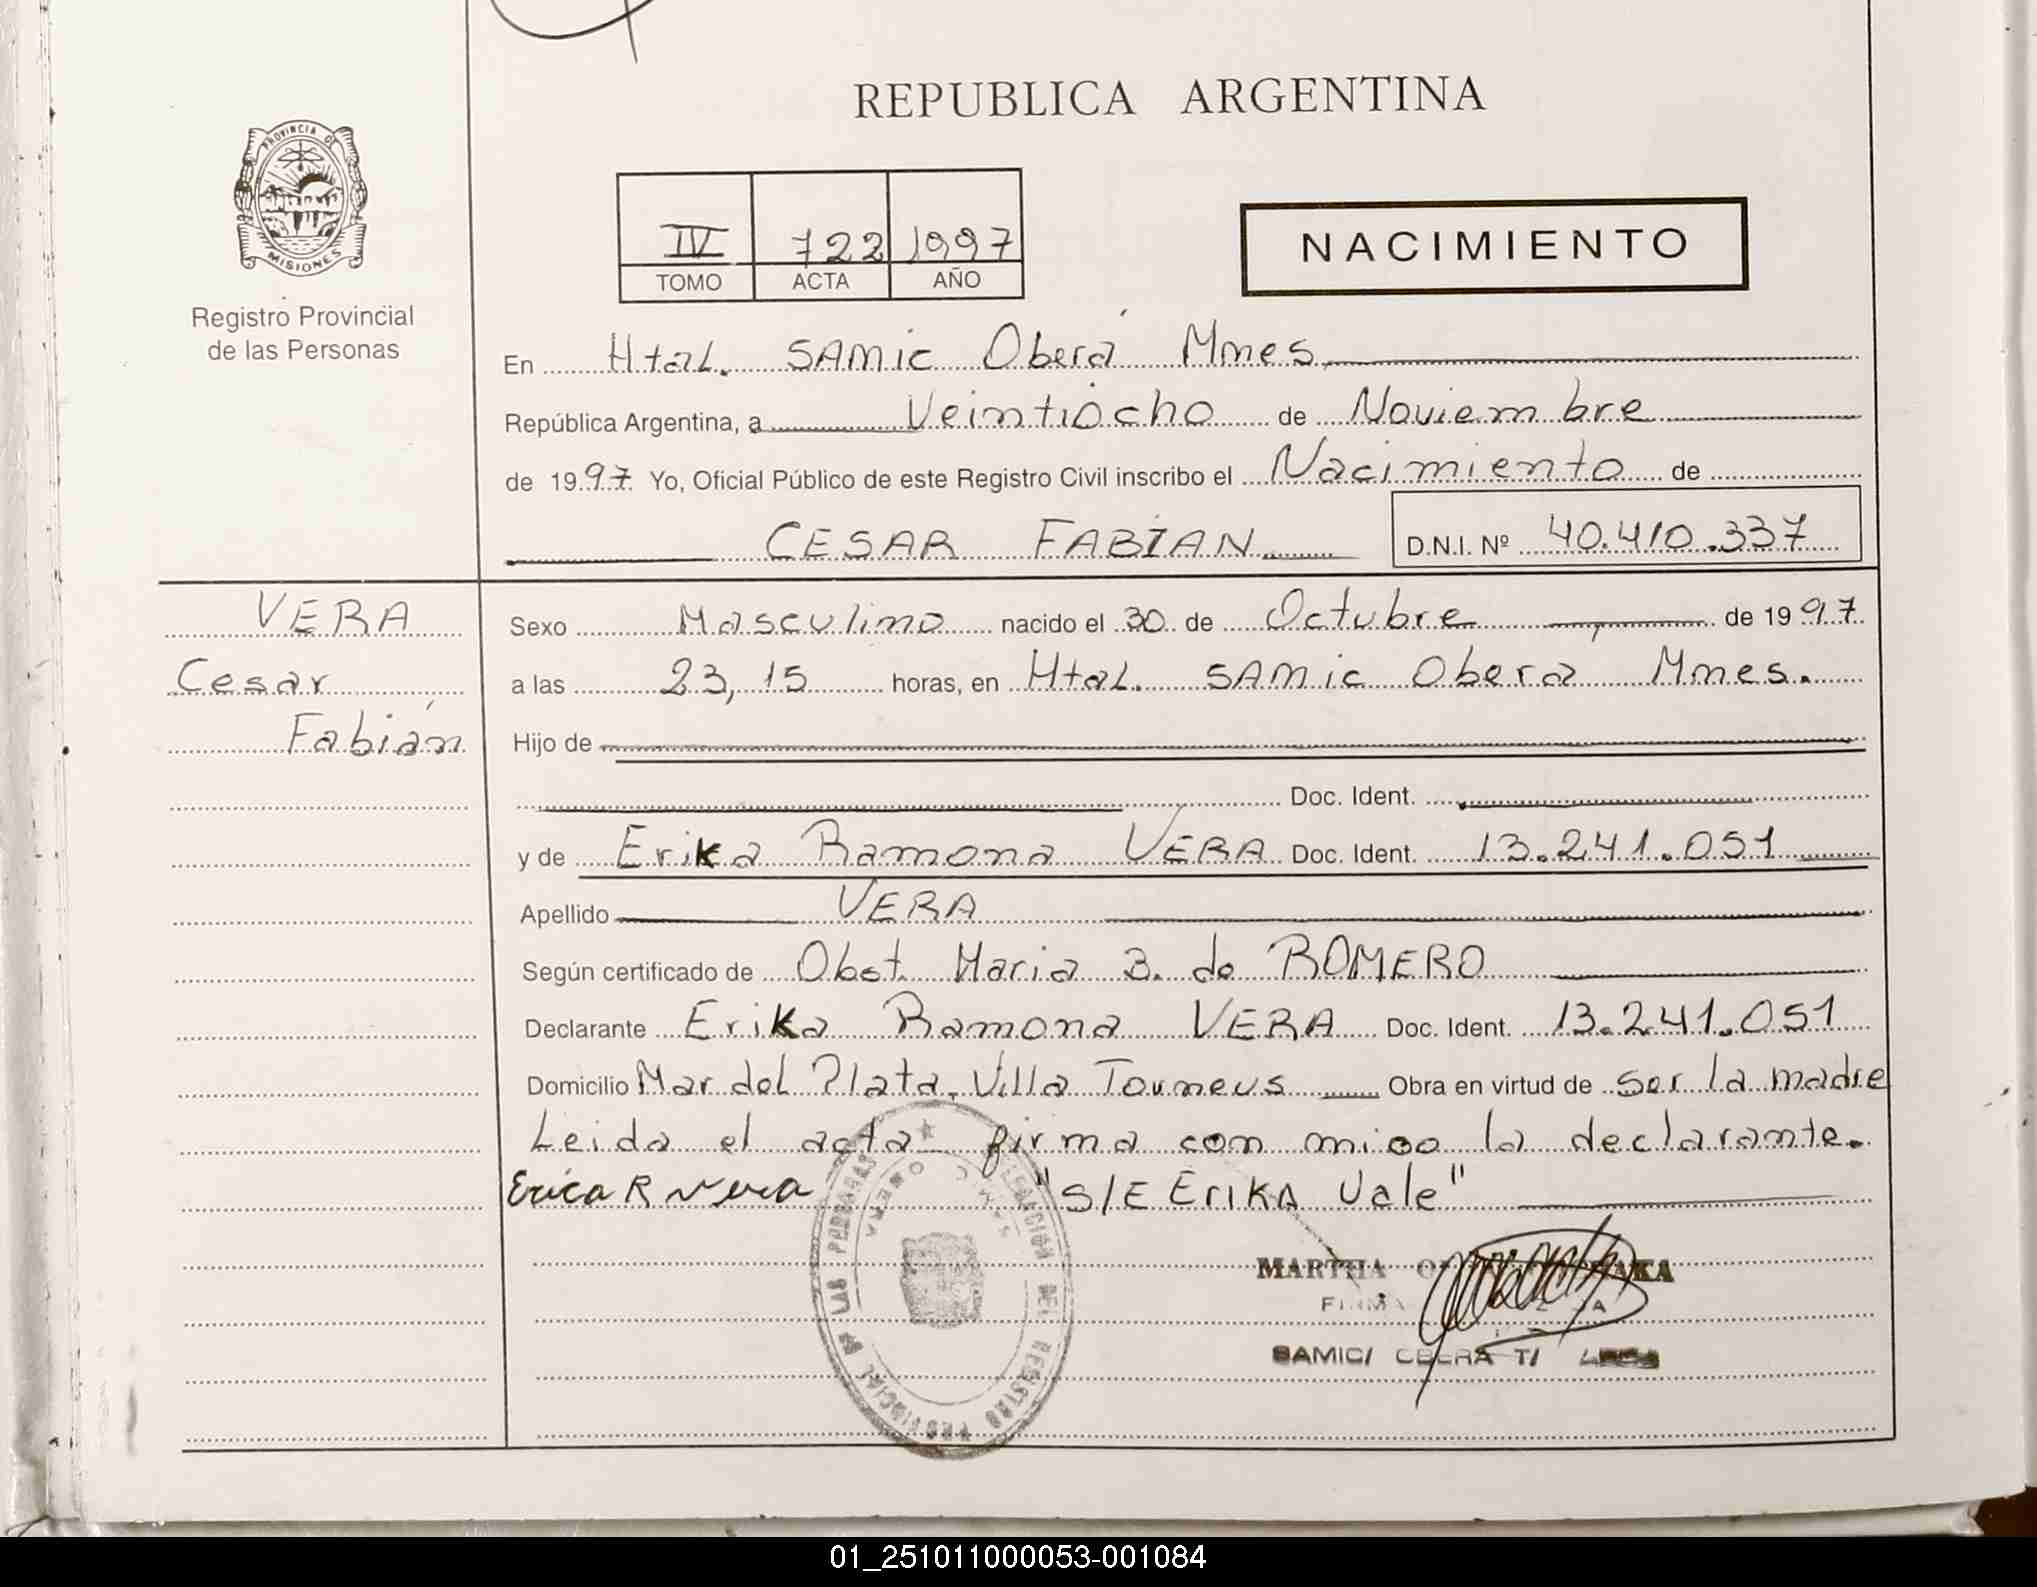 REPUBLICA ARGENTINA
PROVINCIA DE
MISIONES
Registro Provincial
de las Personas
IV 722 1997
TOMO ACTA AÑO
NACIMIENTO
En Htal. SAMIC Oberá Mnes.
República Argentina, a Veintiocho de Noviembre
de 1997 Yo, Oficial Público de este Registro Civil inscribo el Nacimiento de
CESAR FABIAN D.N.I. Nº 40.410.337
VERA
Cesar
Fabián
Sexo Masculino nacido el 30 de Octubre de 1997
a las 23,15 horas, en Htal. SAMIC Obera Mnes.
Hijo de
Doc. Ident.
y de Erika Ramona VERA Doc. Ident. 13.241.051
Apellido VERA
Según certificado de Obst. Maria B. de ROMERO
Declarante Erika Ramona VERA Doc. Ident. 13.241.051
Domicilio Mar del Plata, Villa Torneus Obra en virtud de ser la madre
Leida el acta firma con migo la declarante.
Erica R Vera "S/E ERIKA Vale"
DELEGACION DEL REGISTRO PROVINCIAL DE LAS PERSONAS
SAMIC OBERA
MARTHA
SAMIC/ OBERA
01_251011000053-001084